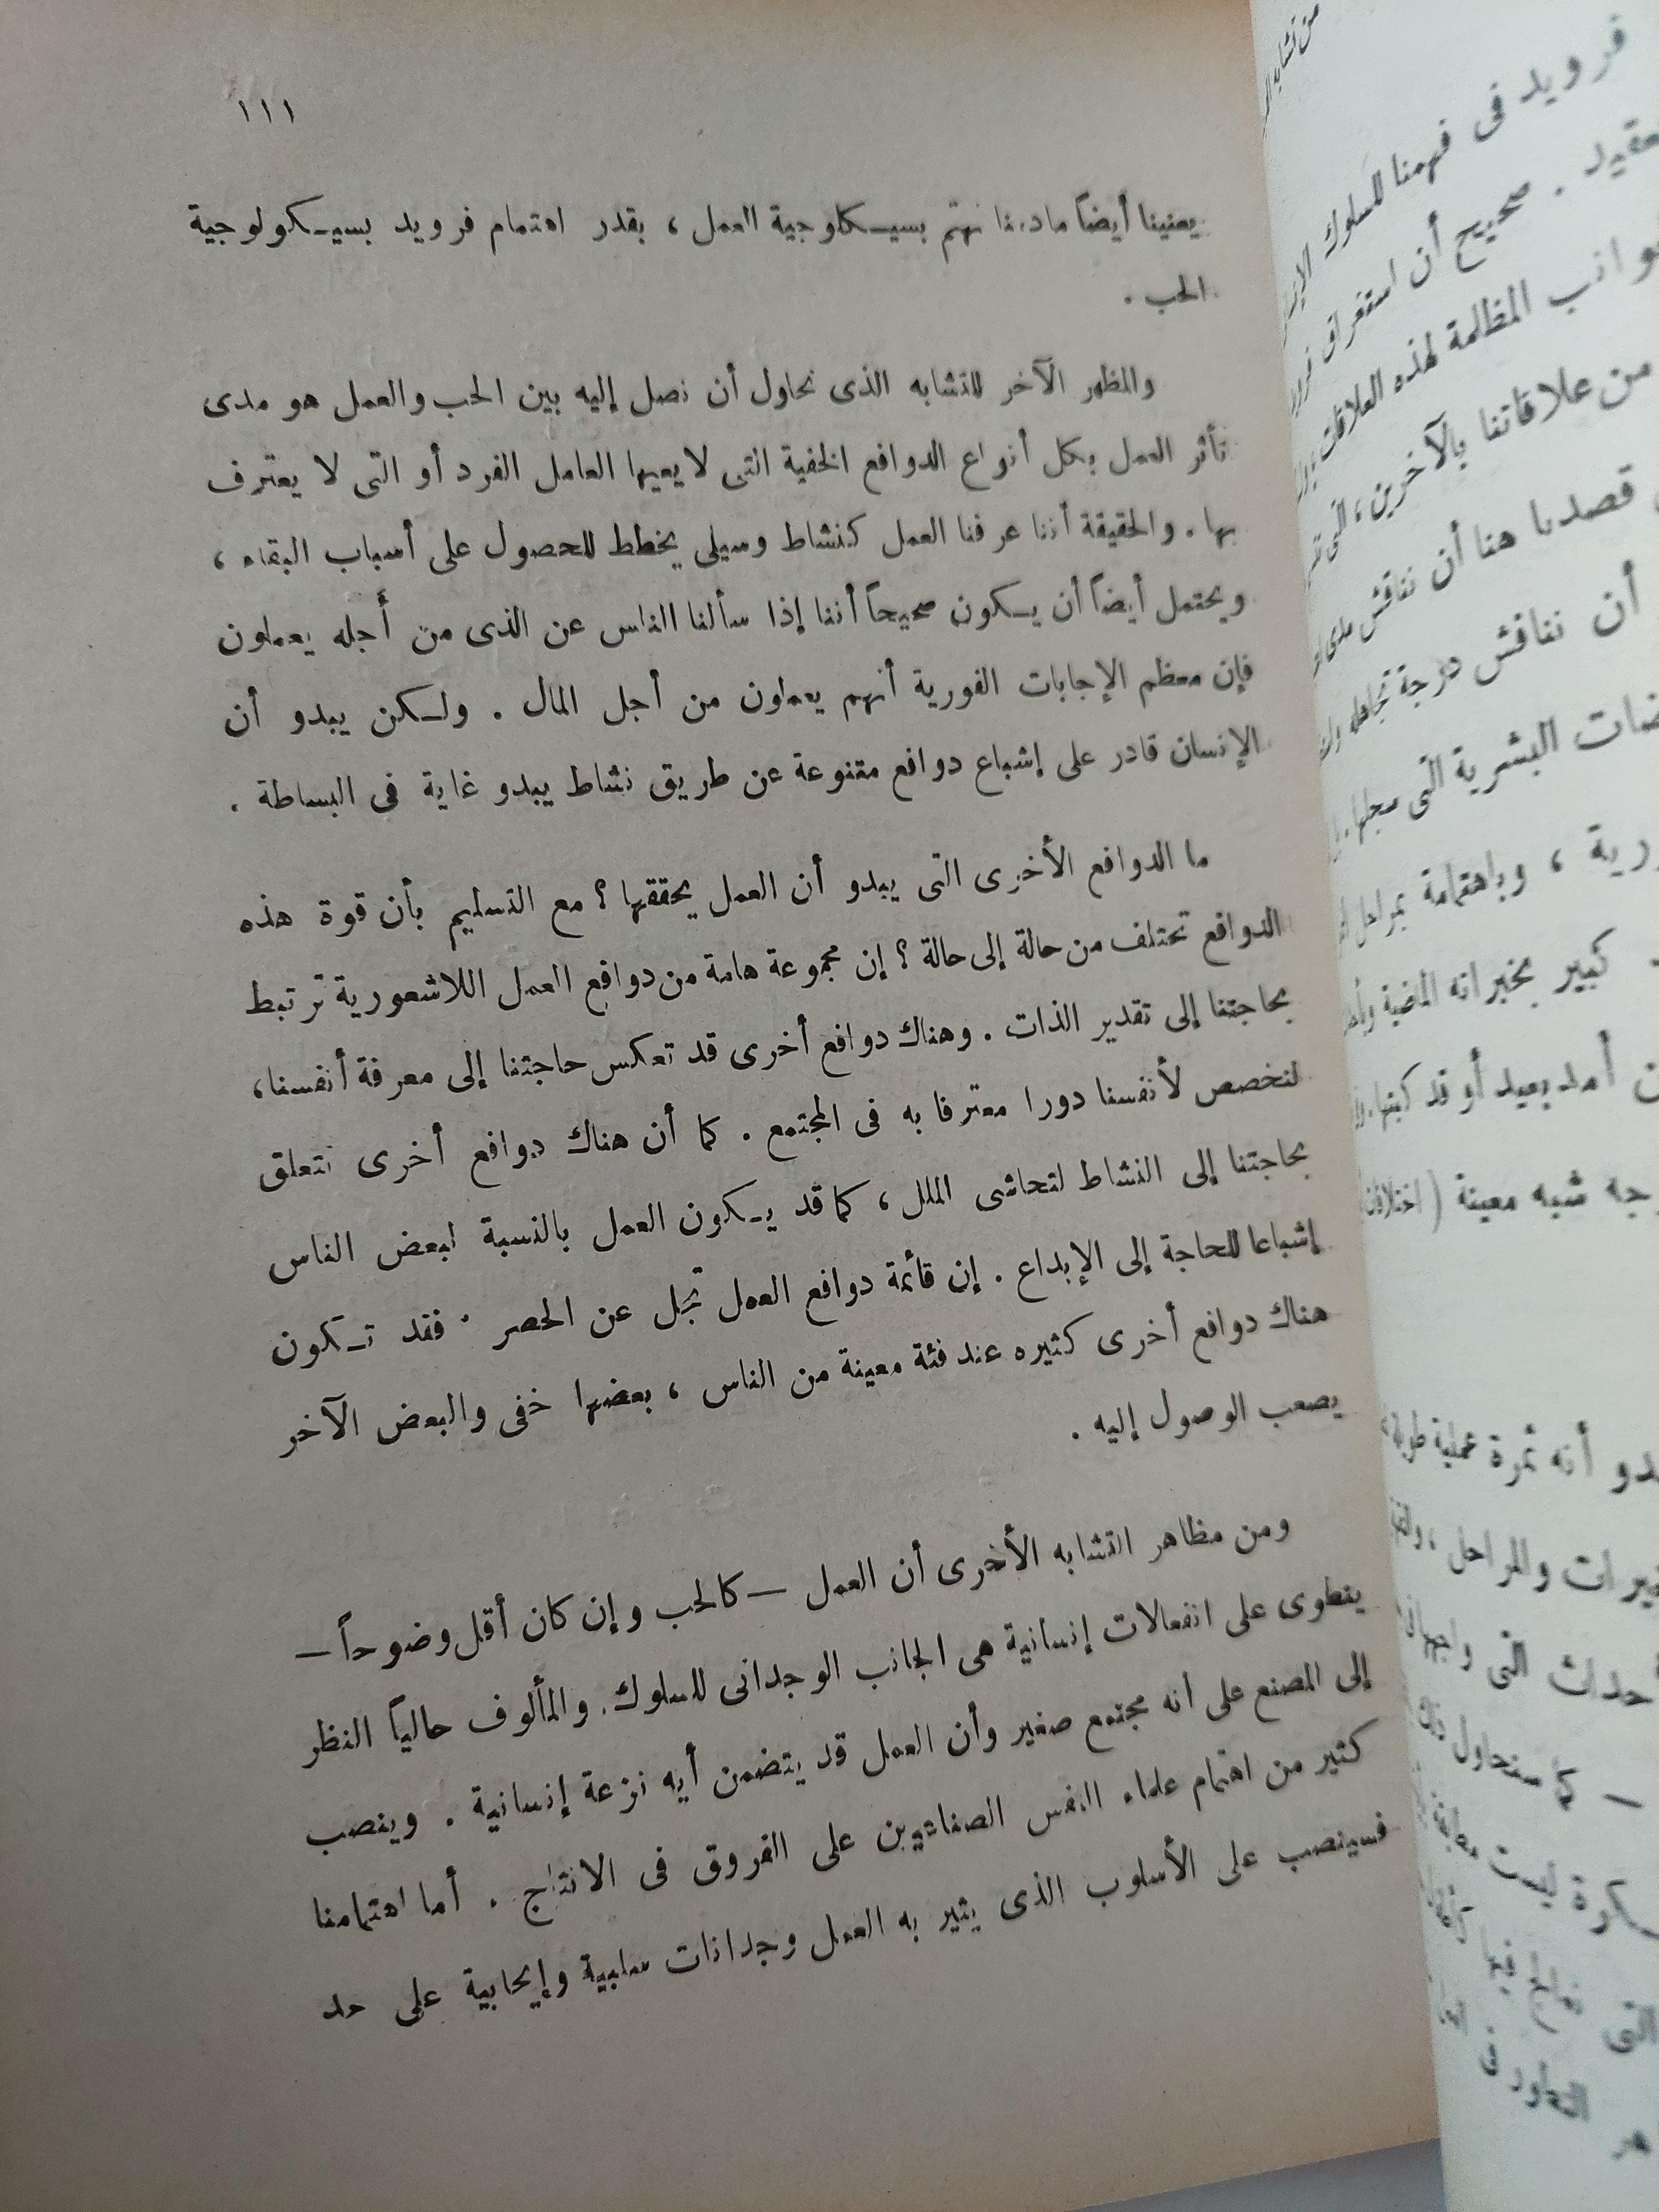 ١١١
يعنينا أيضاً مادمنا نهتم بسيكلوجية العمل ، بقدر اهتمام فرويد بسيكولوجية
الحب .
والمظهر الآخر للتشابه الذى نحاول أن نصل إليه بين الحب والعمل هو مدى
تأثر العمل بكل أنواع الدوافع الخفية التى لا يعيها العامل الفرد أو التى لا يعترف
بها . والحقيقة أننا عرفنا العمل كنشاط وسيلى يخطط للحصول على أسباب البقاء ،
ويحتمل أيضاً أن يكون صحيحاً أننا إذا سألنا الناس عن الذى من أَجله يعملون
فإن معظم الإجابات الفورية أنهم يعملون من أجل المال . ولكن يبدو أن
الإنسان قادر على إشباع دوافع متنوعة عن طريق نشاط يبدو غاية فى البساطة .
ما الدوافع الأخرى التى يبدو أن العمل يحققها ؟ مع التسليم بأن قوة هذه
الدوافع تختلف من حالة إلى حالة ؟ إن مجموعة هامة من دوافع العمل اللاشعورية ترتبط
بحاجتنا إلى تقدير الذات . وهناك دوافع أخرى قد تعكس حاجتنا إلى معرفة أنفسنا ،
لنخصص لأنفسنا دورا معترفا به فى المجتمع . كما أن هناك دوافع أخرى تتعلق
بحاجتنا إلى النشاط لتحاشى الملل ، كما قد يكون العمل بالنسبة لبعض الناس
إشباعا للحاجة إلى الإبداع . إن قائمة دوافع العمل تجل عن الحصر . فقد تكون
هناك دوافع أخرى كثيره عند فئة معينة من الناس ، بعضها خفى والبعض الآخر
يصعب الوصول إليه .
ومن مظاهر التشابه الأخرى أن العمل — كالحب وإن كان أقل وضوحاً —
ينطوى على انفعالات إنسانية هى الجانب الوجدانى للسلوك . والمألوف حالياً النظر
إلى المصنع على أنه مجتمع صغير وأن العمل قد يتضمن أيه نزعة إنسانية . وينصب
كثير من اهتمام علماء النفس الصناعيين على الفروق فى الانتاج . أما اهتمامنا
فسينصب على الأسلوب الذى يثير به العمل وجدانات سلبية وإيجابية على حد
فرويد فى فهمنا للسلوك
صحيح أن استغراق
المظلمة لهذه العلاقات
من علاقاتنا بالآخرين ، التى
قصدنا هنا أن نناقش مدى
أن نناقش درجة تجاهله
البشرية التى سجلها
وباهتمامة بمراحل
كبير بخبراته الماضية
أمد بعيد أو قد كبتها
شبه معينة ( اختلافات
أنه ثمرة عملية طويلة
والمراحل
التى واجهها
— كما سنحاول
ليست
التى